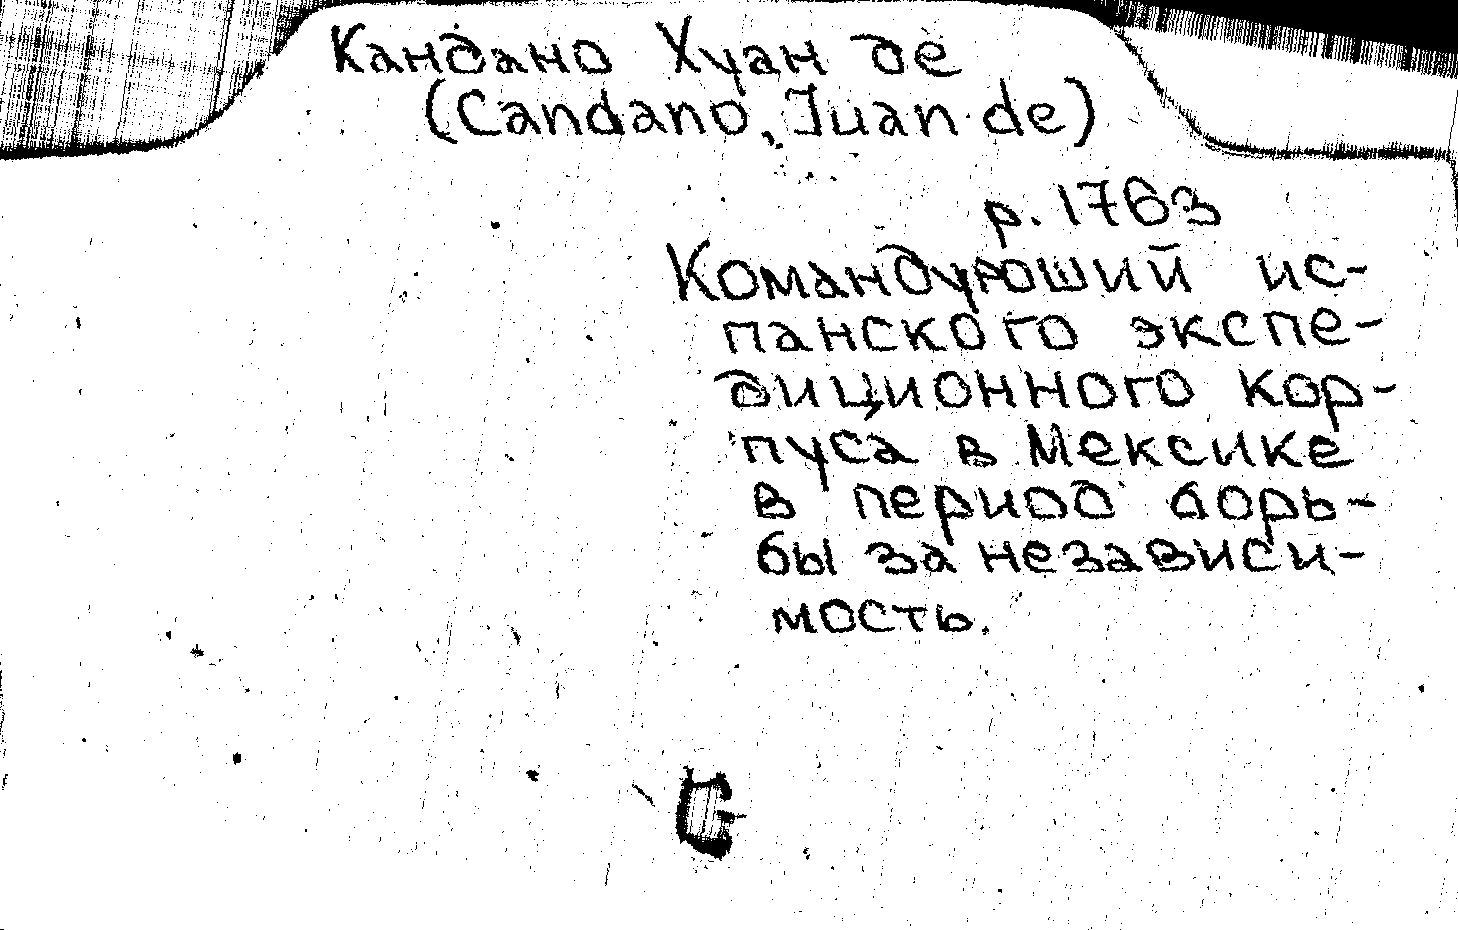 Кандано Хуан де
(Candano, Juan de)
р. 1763
Командующий ис-
панского экспе-
диционного кор-
пуса в Мексике
в период борь-
бы за независи-
мость.